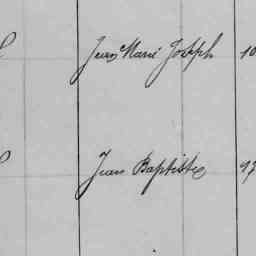 Jean Marie Joseph 10
Jean Baptiste 17